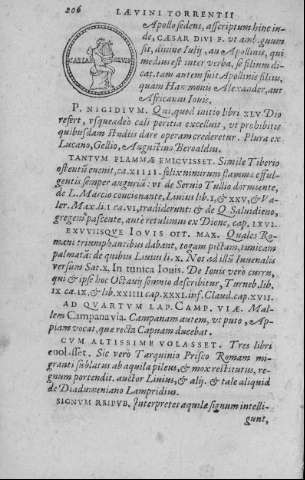 206 LAEVINI TORRENTII
Apollo sedens, asscriptum hinc inde, CAESAR DIVI F. ut ambiguum
sit, divine Iuli, an Apollinis, qui
medius est inter verba, se filium dicat. tam autem fuit Apollinis filius,
quam Hammonis Alexander, aut
Africanus Iovis.
P. NIGIDIVM. Qui, quod initio libri XLV Dio
refert, usqueadeo cali peritia excelluit, ut prohibitis
quibusdam studiis dare operam crederetur. Plura ex
Lucano, Gellio, Augustino Beroaldus.
TANTVM FLAMMAE EMICVISSET. Simile Tiberio
ostentũ evenit, ca. XIIII. felix nimirum flamma effulgentis semper auguriũ: ut de Servio Tullio dormiente,
de L. Marcio concionante, Livius lib. I, & XXV, & Valer. Max. li. I. ca. VI, tradiderunt: & de Q. Salvidieno,
gregem pascente, aut è retulimus ex Dione, cap. LXVI.
EXVVIISQVE IOVIS OPT. MAX. Qualis Romani triumphantibus dabant, togam pictam, tunicam
palmatã: de quibus Livius li. X. Not ad illũ Iuvenalis
versum Sat. X. In tunica Iovis. De Iovis verò curru,
qui & ipse hoc Octavii somnio describitur, Turneb. lib.
IX. ca. IX. & lib. XXIIII. cap. XXXI. inf. Claud. cap. XVII.
AD QVARTVM LAP. CAMP. VIAE. Mallem Campanâ viâ. Campanam autem, ut puto, Appiam vocat, qua rectà Capuam ducebat.
CVM ALTISSIME VOLASSET. Tres libri
evolasset. Sic verò Tarquinio Prisco Romam migranti sublatus ab aquila pileus, & mox restitutus, regnum portendit. auctor Livius, & alij. & tale aliquid
de Diadumeniano Lampridius.
SIGNVM REIPVB. Interpretes aquilae signum intelligunt,